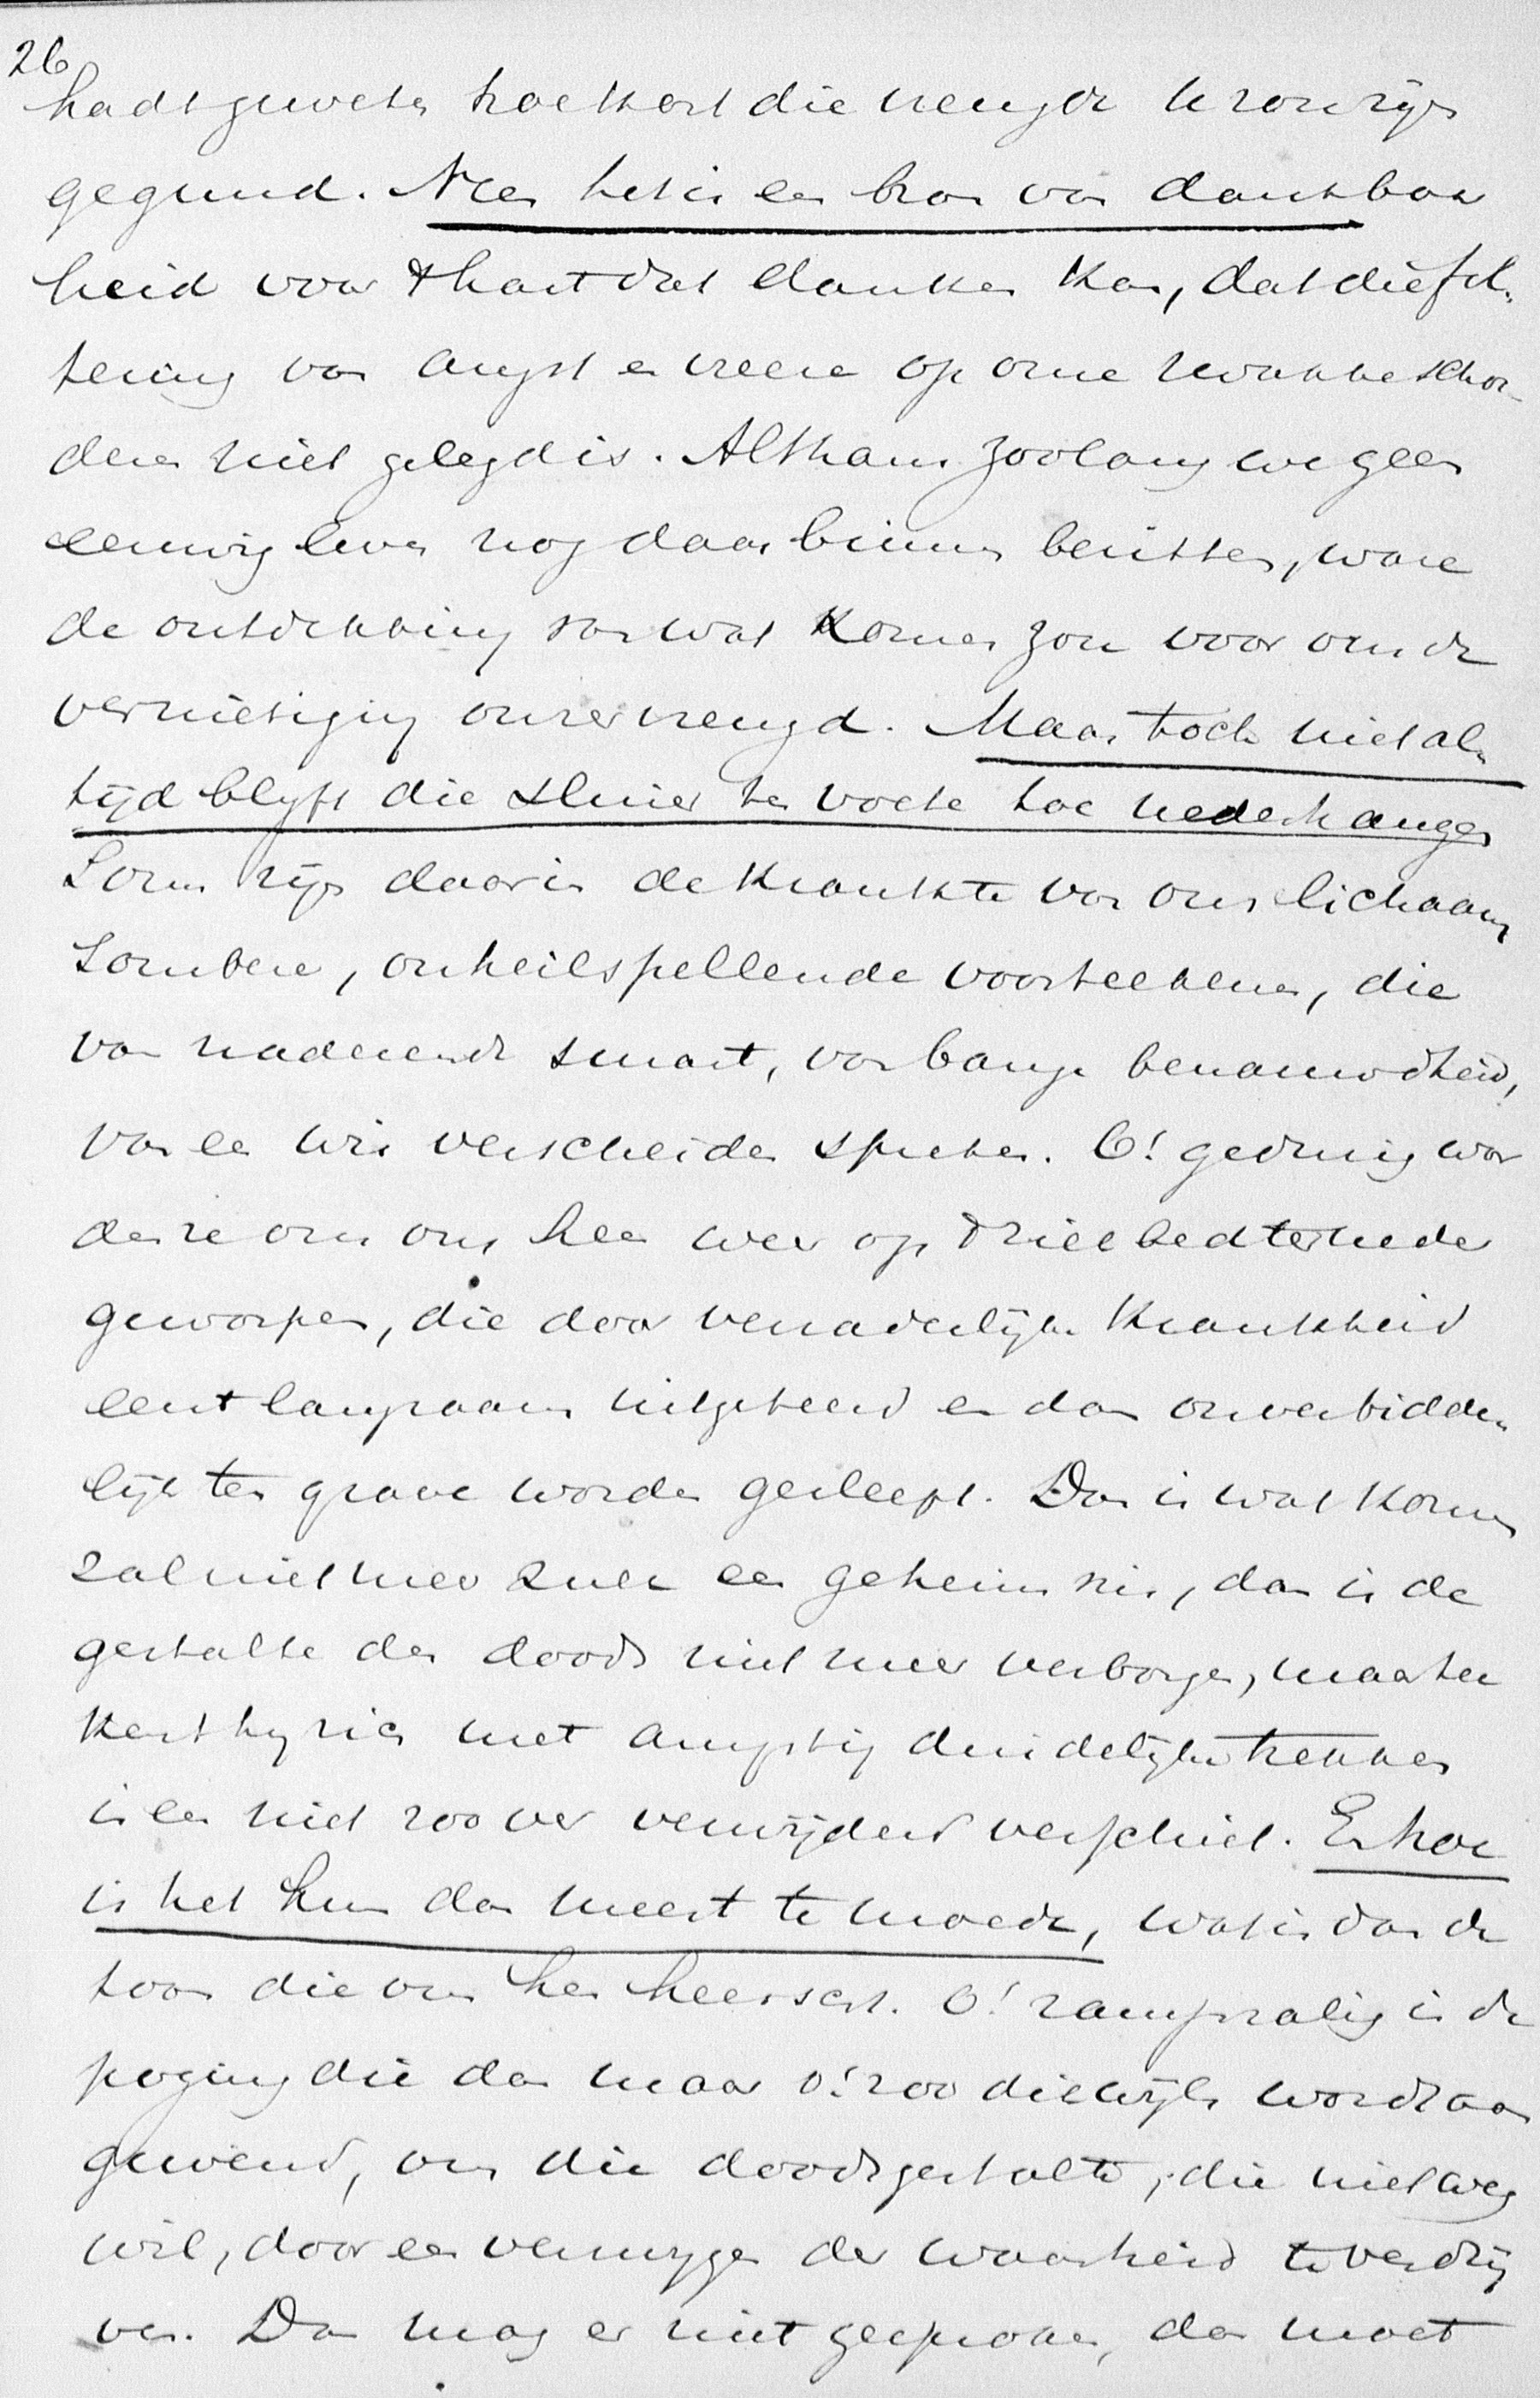 26
hadt geweten hoe kort die vreugde u zou zijn
gegund. Neen het is een bron van dankbaar
heid voor 't hart dat danken kan, dat die fol-
tering van angst en vreeze op onze zwakke schou-
deren niet gelegd is. Althans zoolang we geen
eeuwig leven nog daarbinnen bezitten, ware
de ontdekking van wat komen zou voor ons de
vernietiging onzer vreugd. Maar toch niet al-
tijd blijft die sluier ten voete toe nederhangen
Soms zijn daar in de krankte van ons lichaam
sombere, onheilspellende voorteekenen, die
van naderende smart, van bange benauwdheid,
van een wis verscheiden spreken. O! gedurig wor
den ze om ons heen weer op 't ziekbed ter neder
geworpen, die door verraderlijke krankheid
eerst langzaam uitgeteerd en dan onverbidde-
lijk ten grave worden gesleept. Dan is wat komen
zal niet meer zulk een geheimnis, dan is de
gestalte des doods niet meer verborgen, maar tee
kent hij zich met angstig duidelijke trekken
in een niet zoo ver verwijderd verschiet. En hoe
is het hun dan meest te moede, wat is dan de
toon die om hen heerscht. O! rampzalig is de
poging die dan maar o! zoo dikwijls wordt aan
gewend, om die doodsgestalte, die niet weg
wil, door een verzwijgen der waarheid te verdrij
ven. Dan mag er niet gesproken, dan moet